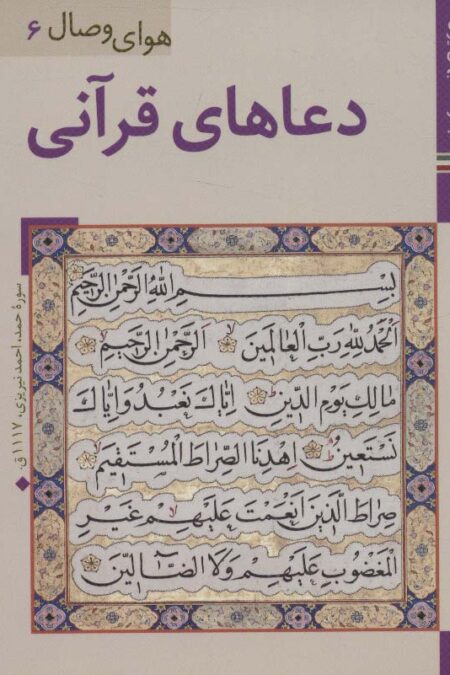 هوای وصال ۶
دعاهای قرآنی
بِسْمِ اللهِ الرَّحْمٰنِ الرَّحِيْمِ
اَلْحَمْدُ لِلّٰهِ رَبِّ الْعَالَمِيْنَ اَلرَّحْمٰنِ الرَّحِيْمِ
مَالِكِ يَوْمِ الدِّيْنِ اِيَّاكَ نَعْبُدُ وَاِيَّاكَ
نَسْتَعِيْنُ اِهْدِنَا الصِّرَاطَ الْمُسْتَقِيْمَ
صِرَاطَ الَّذِيْنَ اَنْعَمْتَ عَلَيْهِمْ غَيْرِ
الْمَغْضُوْبِ عَلَيْهِمْ وَلَا الضَّآلِّيْنَ
سورهٔ حمد، احمد نیریزی، ۱۱۱۷ ق.